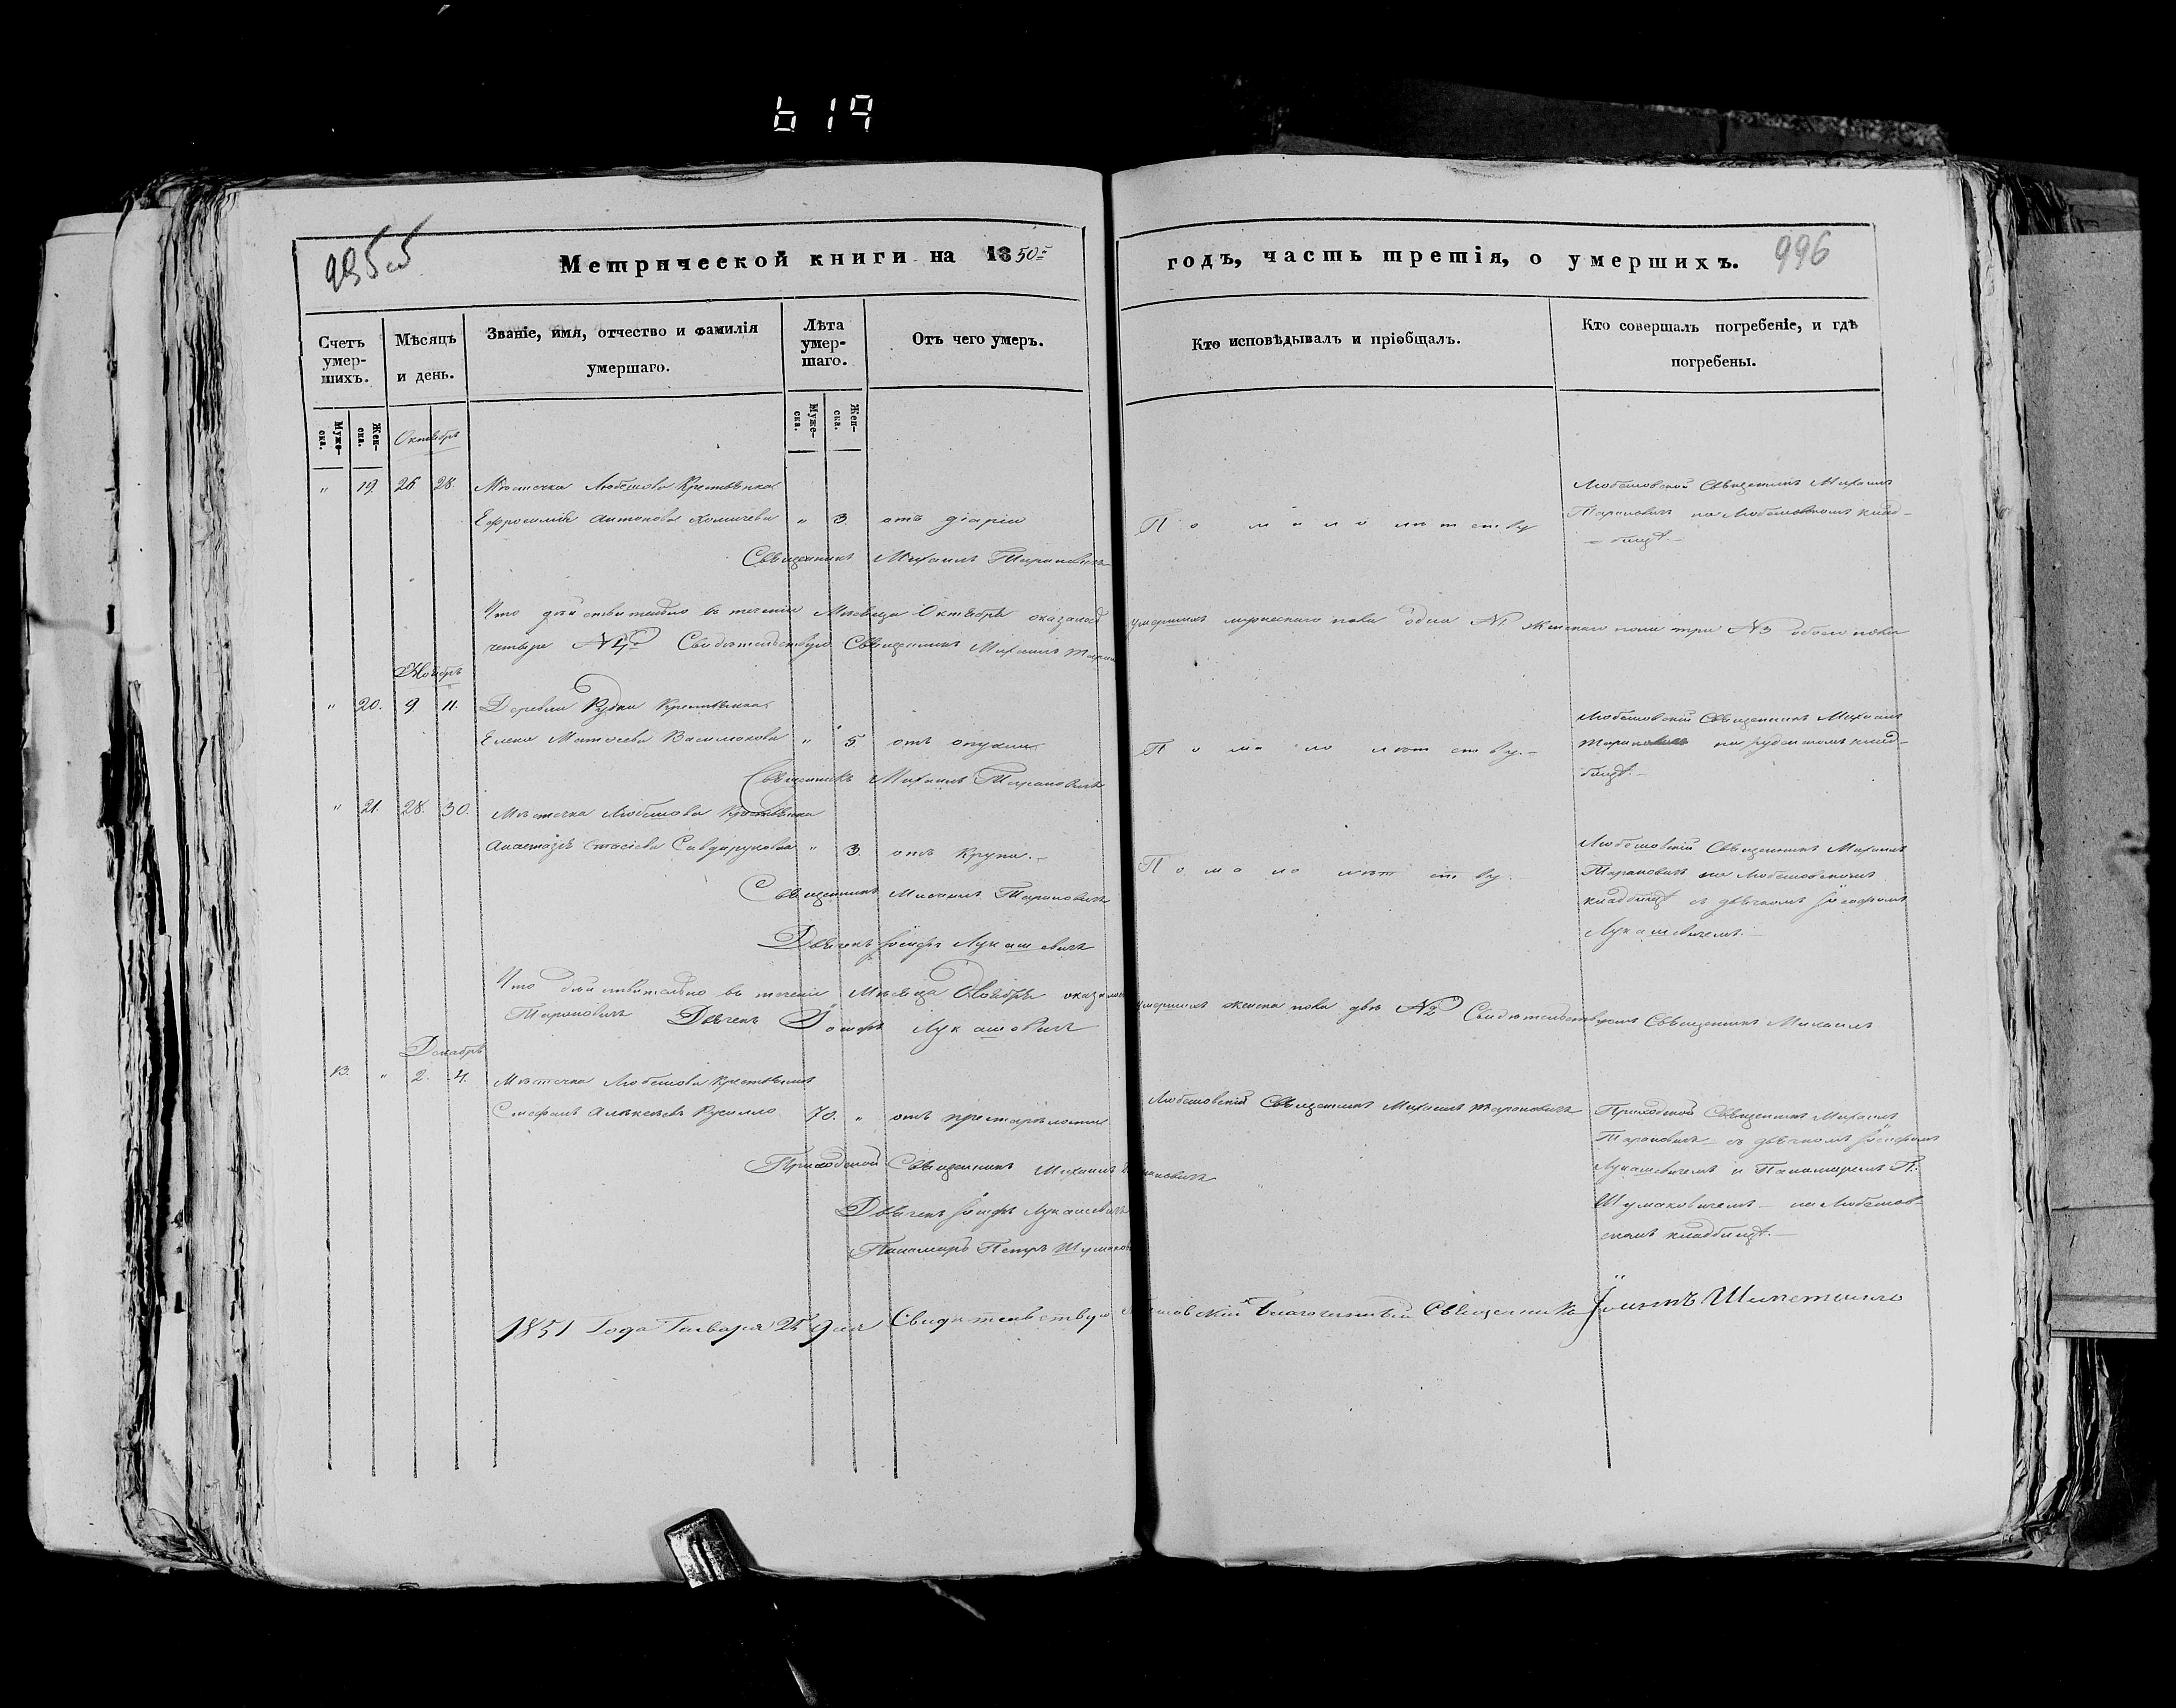 619
995 об
Метрической книги на 1850й
годъ, часть третія, о умершихъ.
996
Счетъ умер-шихъ.
Мѣсяцъ и день.
Званіе, имя, отчество и фамилія умершаго.
Лѣта умер-шаго.
Отъ чего умеръ.
Кто исповѣдывалъ и пріобщалъ.
Кто совершалъ погребеніе, и гдѣ погребены.
Муже-ска.
Жен-ска.
Октябрь
Муже-ска.
Жен-ска.
" 19. 26 28. Мѣстечка Любешова Крестьянка
Ефросинія Антонова Хомичева " 3 отъ діаріи
По малолѣтству
Любешовской Священникъ Михаилъ
Тарановичъ на Любешовскомъ клад-
бищѣ.
Священникъ Михаилъ Тарановичъ
Что дѣйствительно въ теченіи Мѣсяца Октября оказалось умершихъ мужескаго пола одна №1 женскаго пола три №3 обоего пола
четыре №4 Свидѣтельствую Священникъ Михаилъ
Ноябрь
" 20. 9 11. Деревни Рудки Крестьянка
Елена Матѳеева Василюкова " 5 отъ опухли
По малолѣтству.
Любешовскій Священникъ Михаилъ
Тарановичъ на Рудскомъ клад-
бищѣ.
Священникъ Михаилъ Тарановичъ
" 21. 28. 30. Мѣстечка Любешова Крестьянка
Анастазія " 3. отъ Крупа.
По малолѣтству.
Любешовскій Священникъ Михаилъ
Тарановичъ на Любешовскомъ
кладбищѣ съ дьячкомъ Іосифомъ
Лукашевичемъ.
Священникъ Михаилъ Тарановичъ
Дьячекъ Іосифъ Лукашевичъ
Что дѣйствительно въ теченіи Мѣсяца Ноября оказалось умершихъ женска пола двѣ №2 Свидѣтельствуемъ Священникъ Михаилъ
Тарановичъ Дьячекъ Іосифъ Лукашевичъ
Декабрь
13. " 2. 4. Мѣстечка Любешова Крестьянинъ
Стефанъ Алексѣевъ 70. " отъ престарѣлости
Любешовскій Священникъ Михаилъ Тарановичъ
Приходской Священникъ Михаилъ
Тарановичъ съ дьячкомъ Іосифомъ
Лукашевичемъ и Панамаремъ П.
Шумаковичемъ на Любешов-
скомъ кладбищѣ.
Приходской Священникъ Михаилъ Тарановичъ
Дьячекъ Іосифъ Лукашевичъ
Панамарь Петръ
1851 Года Генваря 25 Дня Свидѣтельствую Благочинный Священникъ Іоаннъ